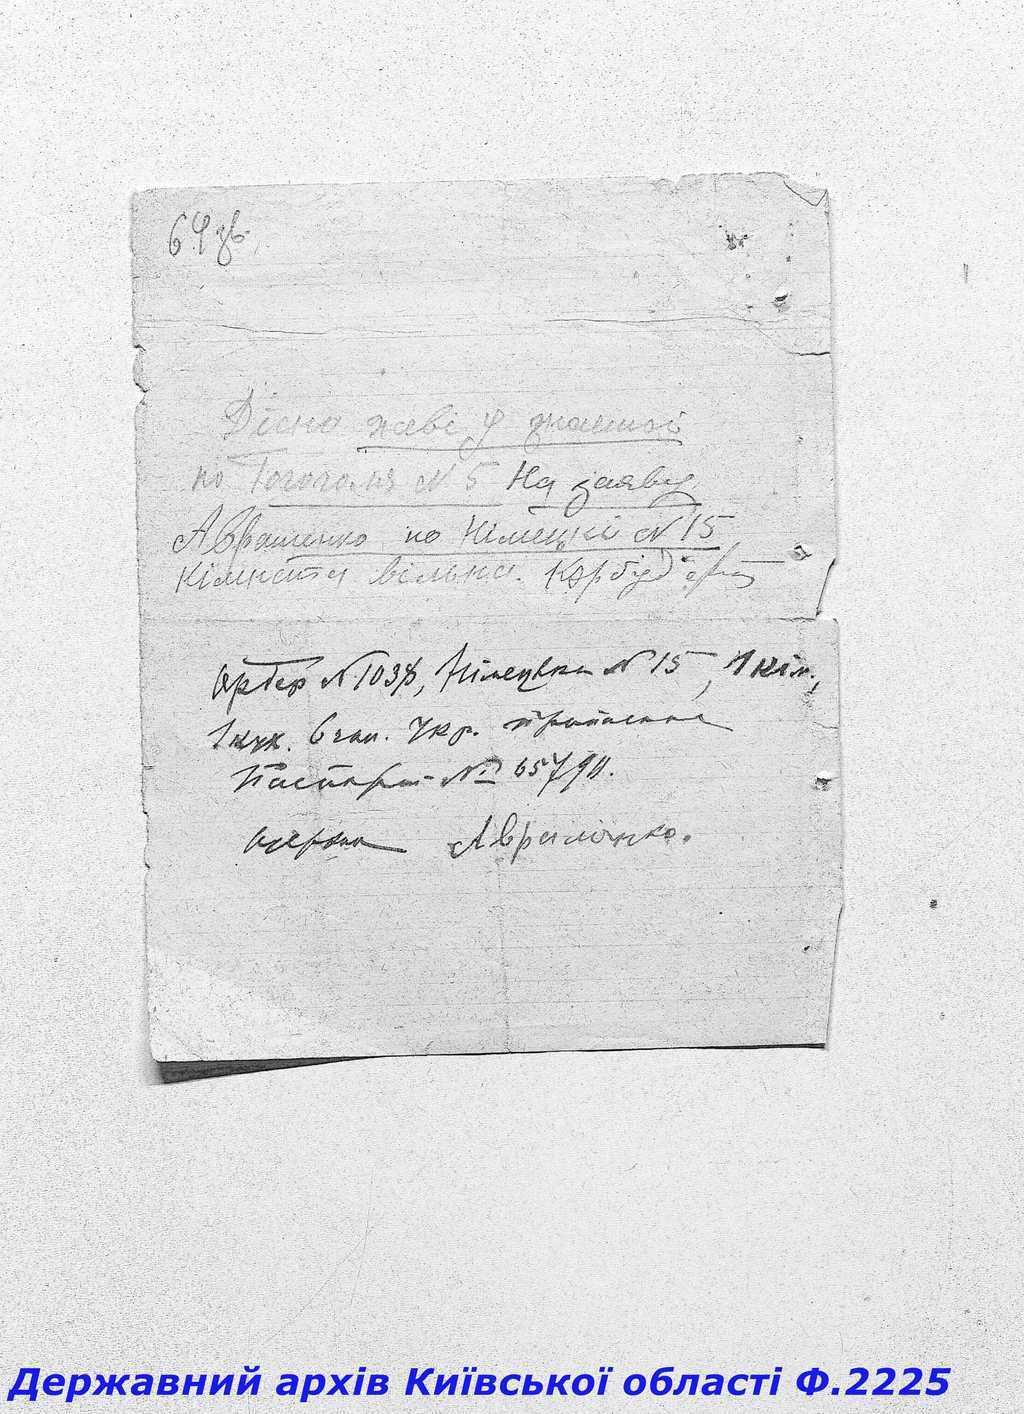 64 зв.
Дісно живе у знакомой
по Гоголя № 5 На заяву
Авраменко по Німецкій № 15
Кімната вільна.
Ордер № 1038, Німецька № 15, 1 кім.,
1 кух. 6 чол. Укр.
Паспорт № 65790.
Авраменко.
Державний архів Київської області Ф.2225